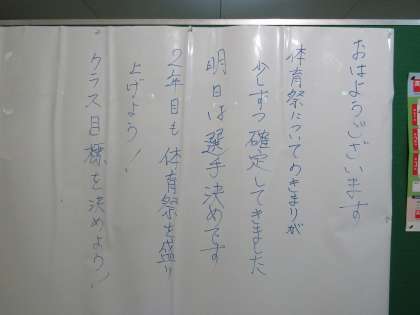 おはようございます
体育祭についてのきまりが
少しずつ確定してきました
明日は選手決めです
2年目も体育祭を盛り
上げよう!
クラス目標を決めよう!